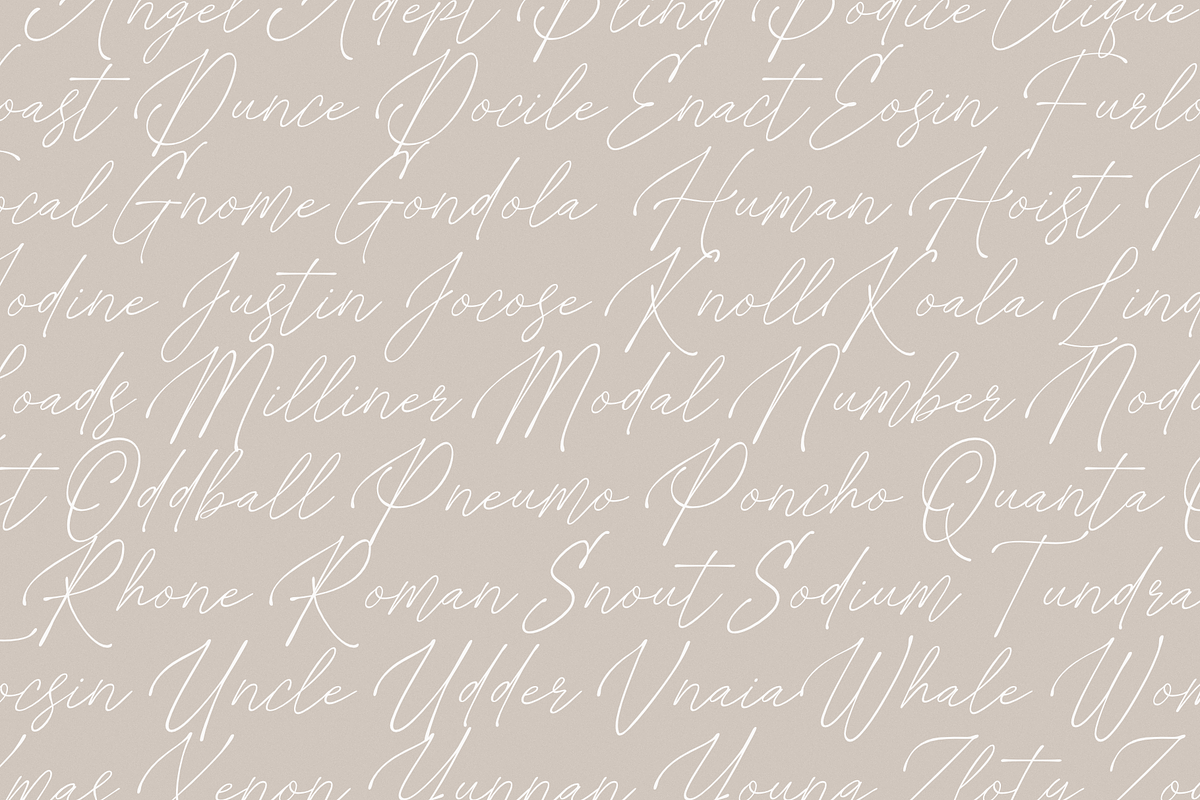 Angel Adept Blind Bodice Clique
oast Dunce Docile Enact Eosin Furlo
ocal Gnome Gondola Human Hoist
Iodine Justin Jocose Knoll Koala Lind
Loads Milliner Modal Number Nod
t Oddball Pneumo Poncho Quanta
Rhone Roman Snout Sodium Tundra
ocsin Uncle Udder Vnaia Whale Wom
mas Xenon Yunnan Young Zloty Zo